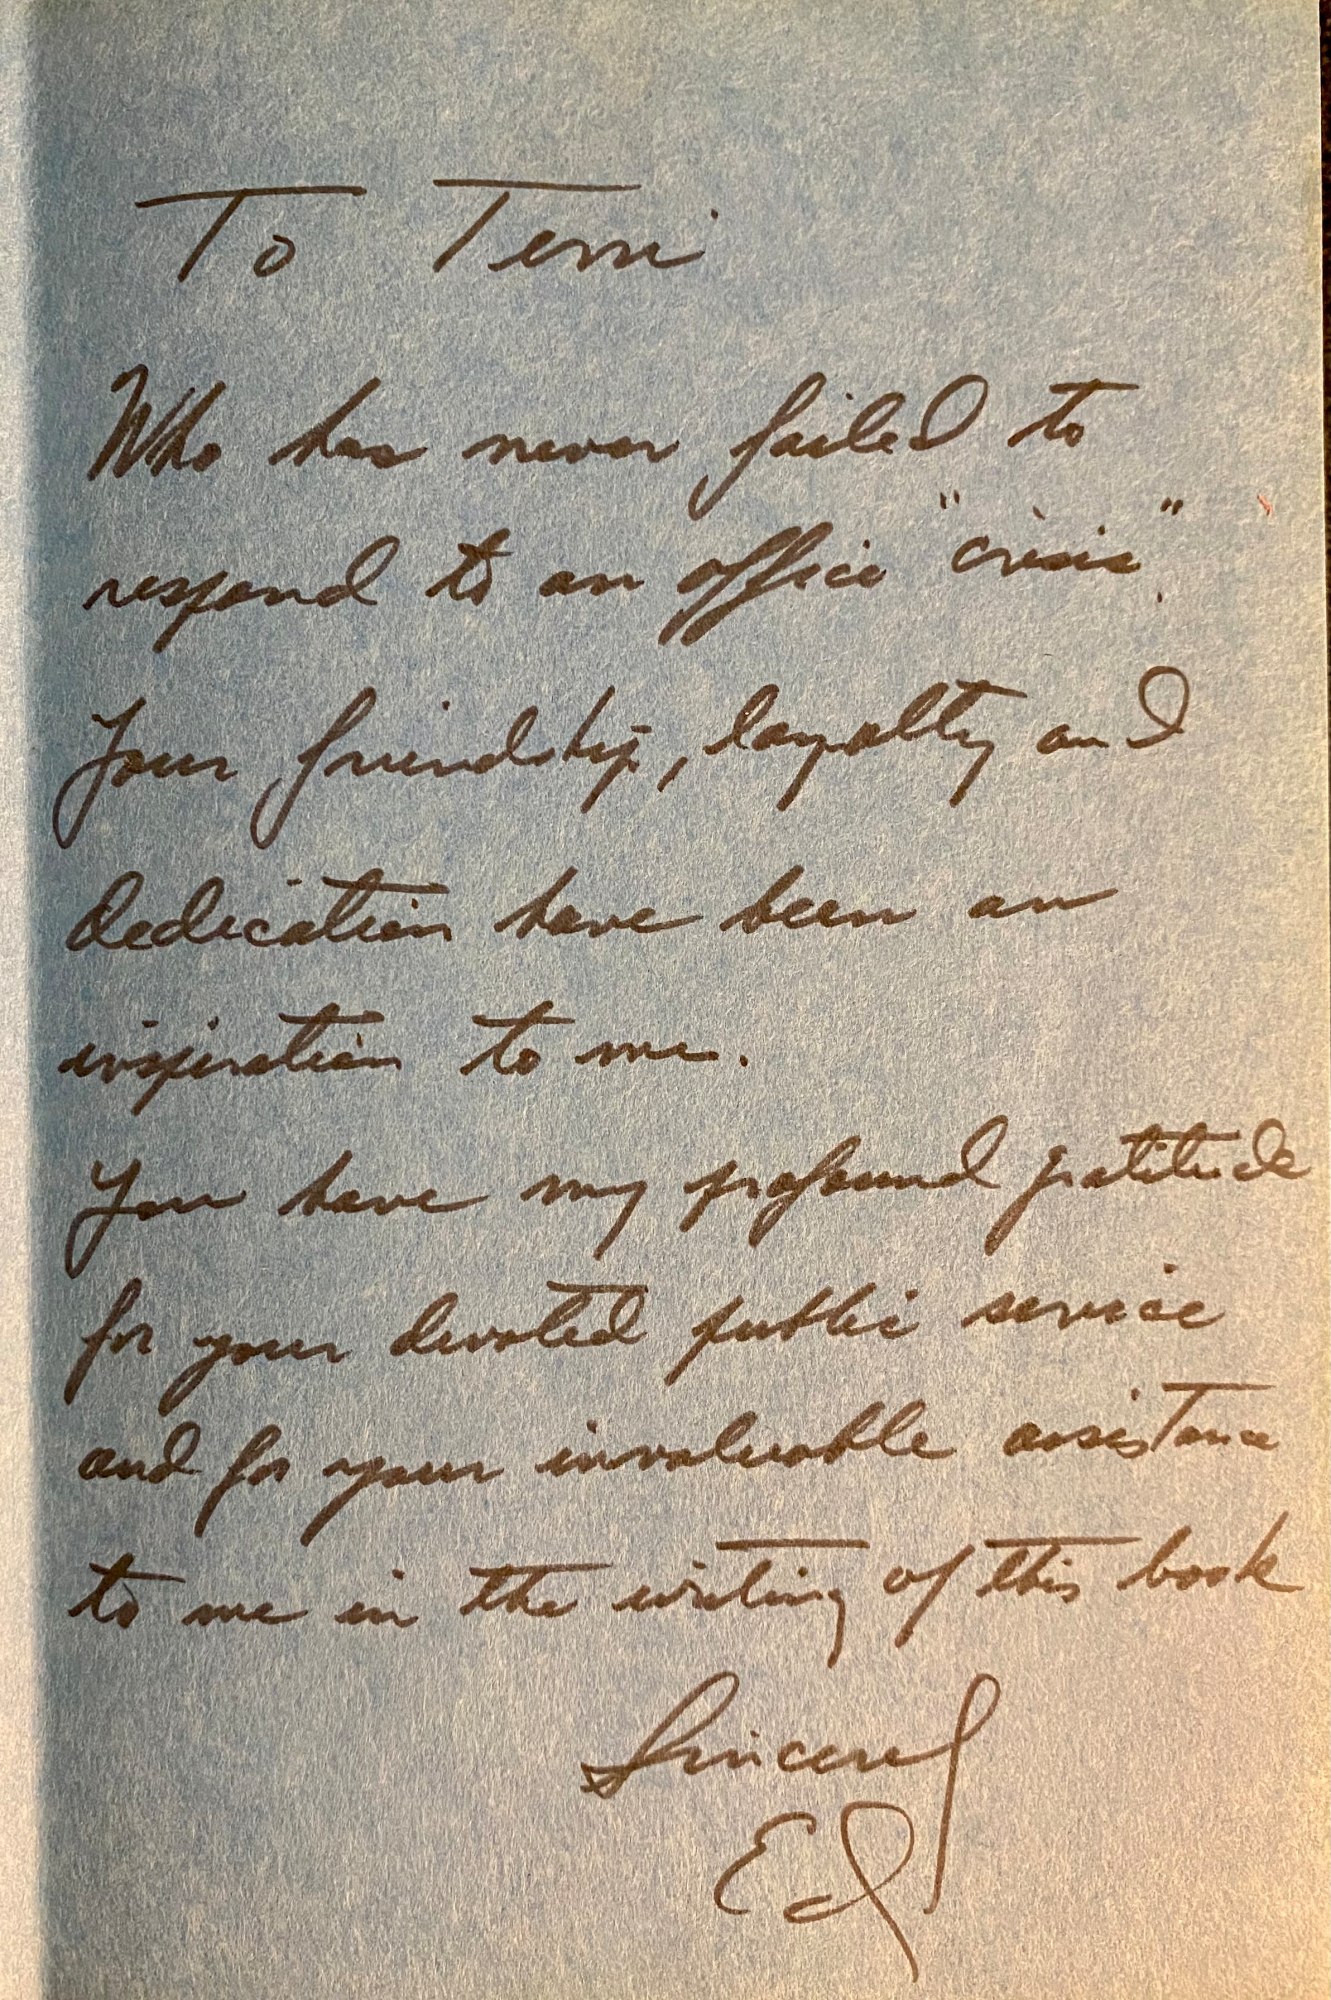 To Terri
Who has never failed to
respond to an office "crisis".
Your friendship, loyalty and
dedication have been an
inspiration to me.
You have my profound gratitude
for your devoted public service
and for your invaluable assistance
to me in the writing of this book
Sincerely
Ed